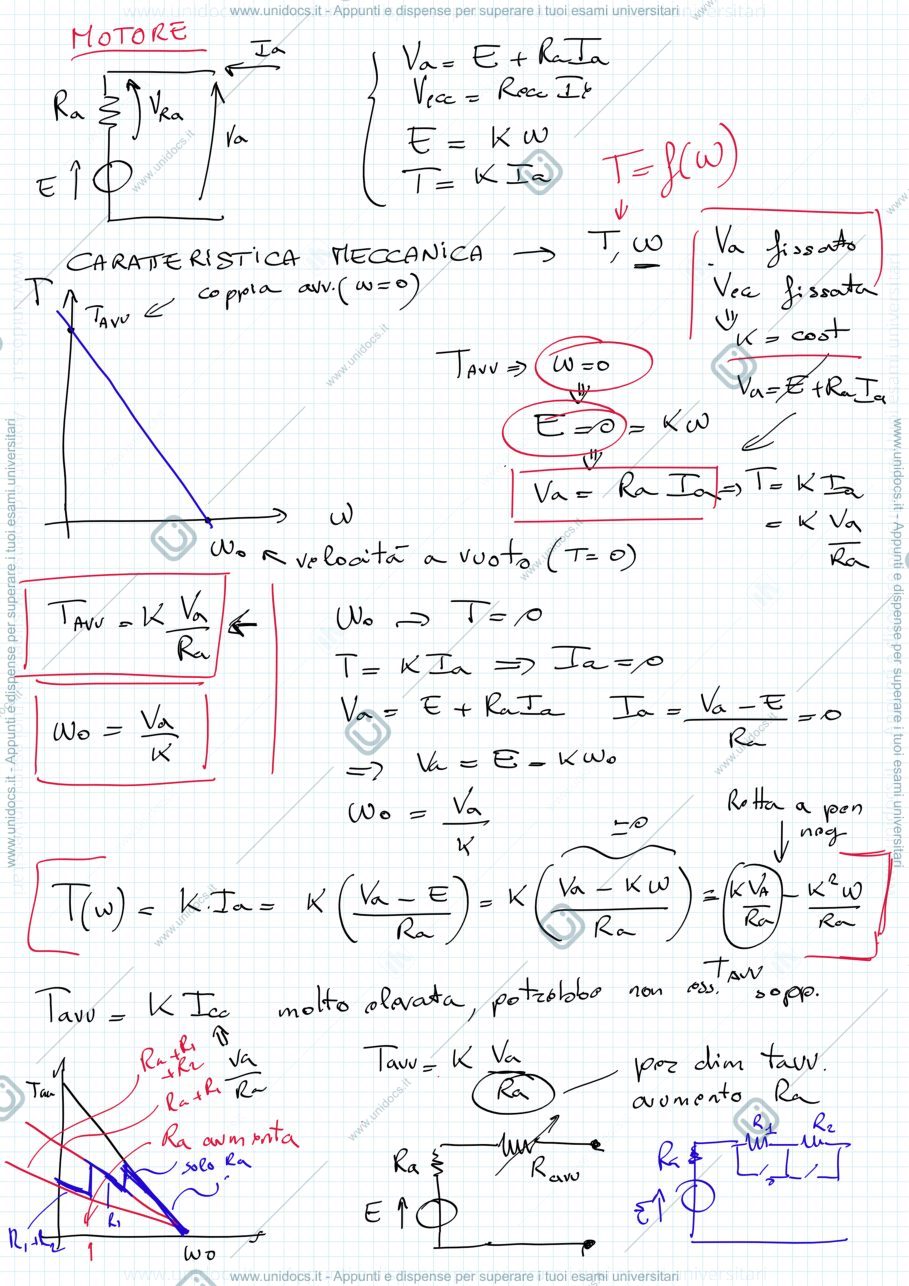 www.unidocs.it - Appunti e dispense per superare i tuoi esami universitari
MOTORE
Ia
Ra
VRa
Va
E
Va = E + RaIa
Vecc = Recc If
E = K ω
T = K Ia
T = f(ω)
CARATTERISTICA MECCANICA → T, ω
Va fissato
Vecc fissata
⇓
K = cost
T
TAVV ← coppia avv. (ω=0)
TAVV ⇒ ω=0
⇓
E=0 = Kω
⇓
Va = Ra Ia ⇒ T = K Ia
= K Va/Ra
Va = E + RaIa
ω
ω0 ← velocità a vuoto (T=0)
TAVV = K Va/Ra ←
ω0 = Va/K
ω0 → T = 0
T = K Ia ⇒ Ia = 0
Va = E + RaIa Ia = (Va - E)/Ra = 0
⇒ Va = E - Kω0
ω0 = Va/K
Retta a pen
neg
=0
T(ω) = K·Ia = K((Va - E)/Ra) = K((Va - Kω)/Ra) = KVA/Ra - K²ω/Ra
TAVV
Tavv = K Icc molto elevata, potrebbe non ess. sopp.
Va/Ra
Tavv
Ra+R1+R2
Ra+R1
Ra aumenta
solo Ra
R1
R1+R2
1
ω0
Tavv = K Va/Ra
per dim tavv.
aumento Ra
Ra
Ravv
E
R1
R2
Ra
E
www.unidocs.it - Appunti e dispense per superare i tuoi esami universitari